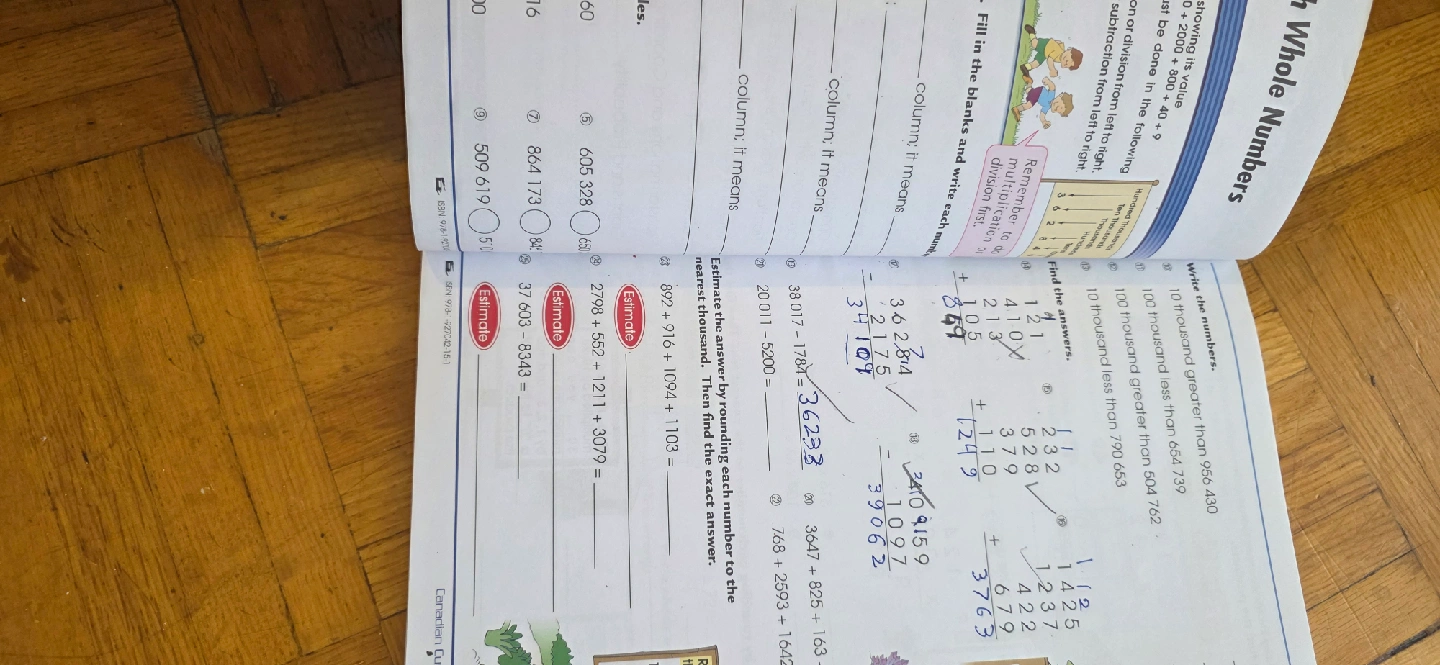 Whole Numbers
showing its value
0 + 2000 + 800 + 40 + 9
ust be done in the following
on or division from left to right.
subtraction from left to right.
Remember to
multiplication
division first.
Fill in the blanks and write each
column; it means
column; it means
column; it means
les.
60 ⑤ 605 328
16 ⑦ 864 173
00 ⑨ 509 619
Write the numbers.
10 thousand greater than 956 430
100 thousand less than 654 739
100 thousand greater than 504 762
10 thousand less than 790 653
Find the answers.
⑭ 121
410
213
+ 105
849
⑮ 1 1
232
528
379
+ 110
1249
⑯ 1 1 2
1425
1237
422
+ 679
3763
⑰ 36284
- 2175
34109
⑱ 40159
- 1097
39062
⑲ 38 017 – 1784 = 36233
⑳ 3647 + 825 + 163
㉑ 20 011 – 5200 =
㉒ 768 + 2593 + 1642
Estimate the answer by rounding each number to the
nearest thousand. Then find the exact answer.
㉓ 892 + 916 + 1094 + 1103 =
Estimate
㉔ 2798 + 552 + 1211 + 3079 =
Estimate
㉕ 37 603 – 8343 =
Estimate